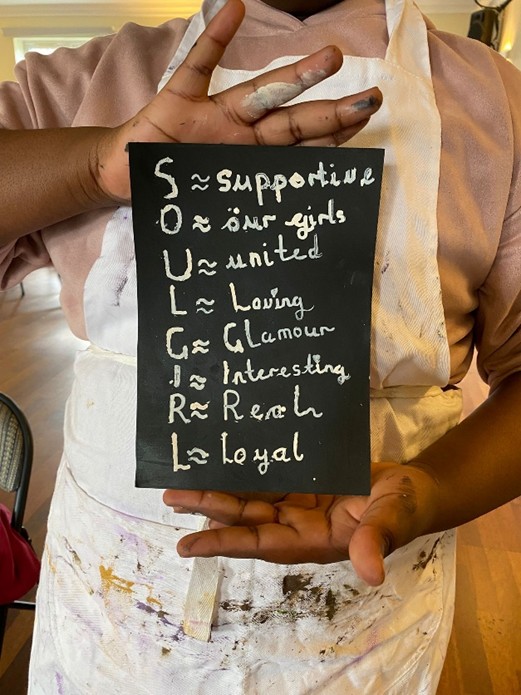 S ≈ supportive
O ≈ öur girls
U ≈ united
L ≈ Loving
G ≈ Glamour
I ≈ Interesting
R ≈ Real
L ≈ Loyal